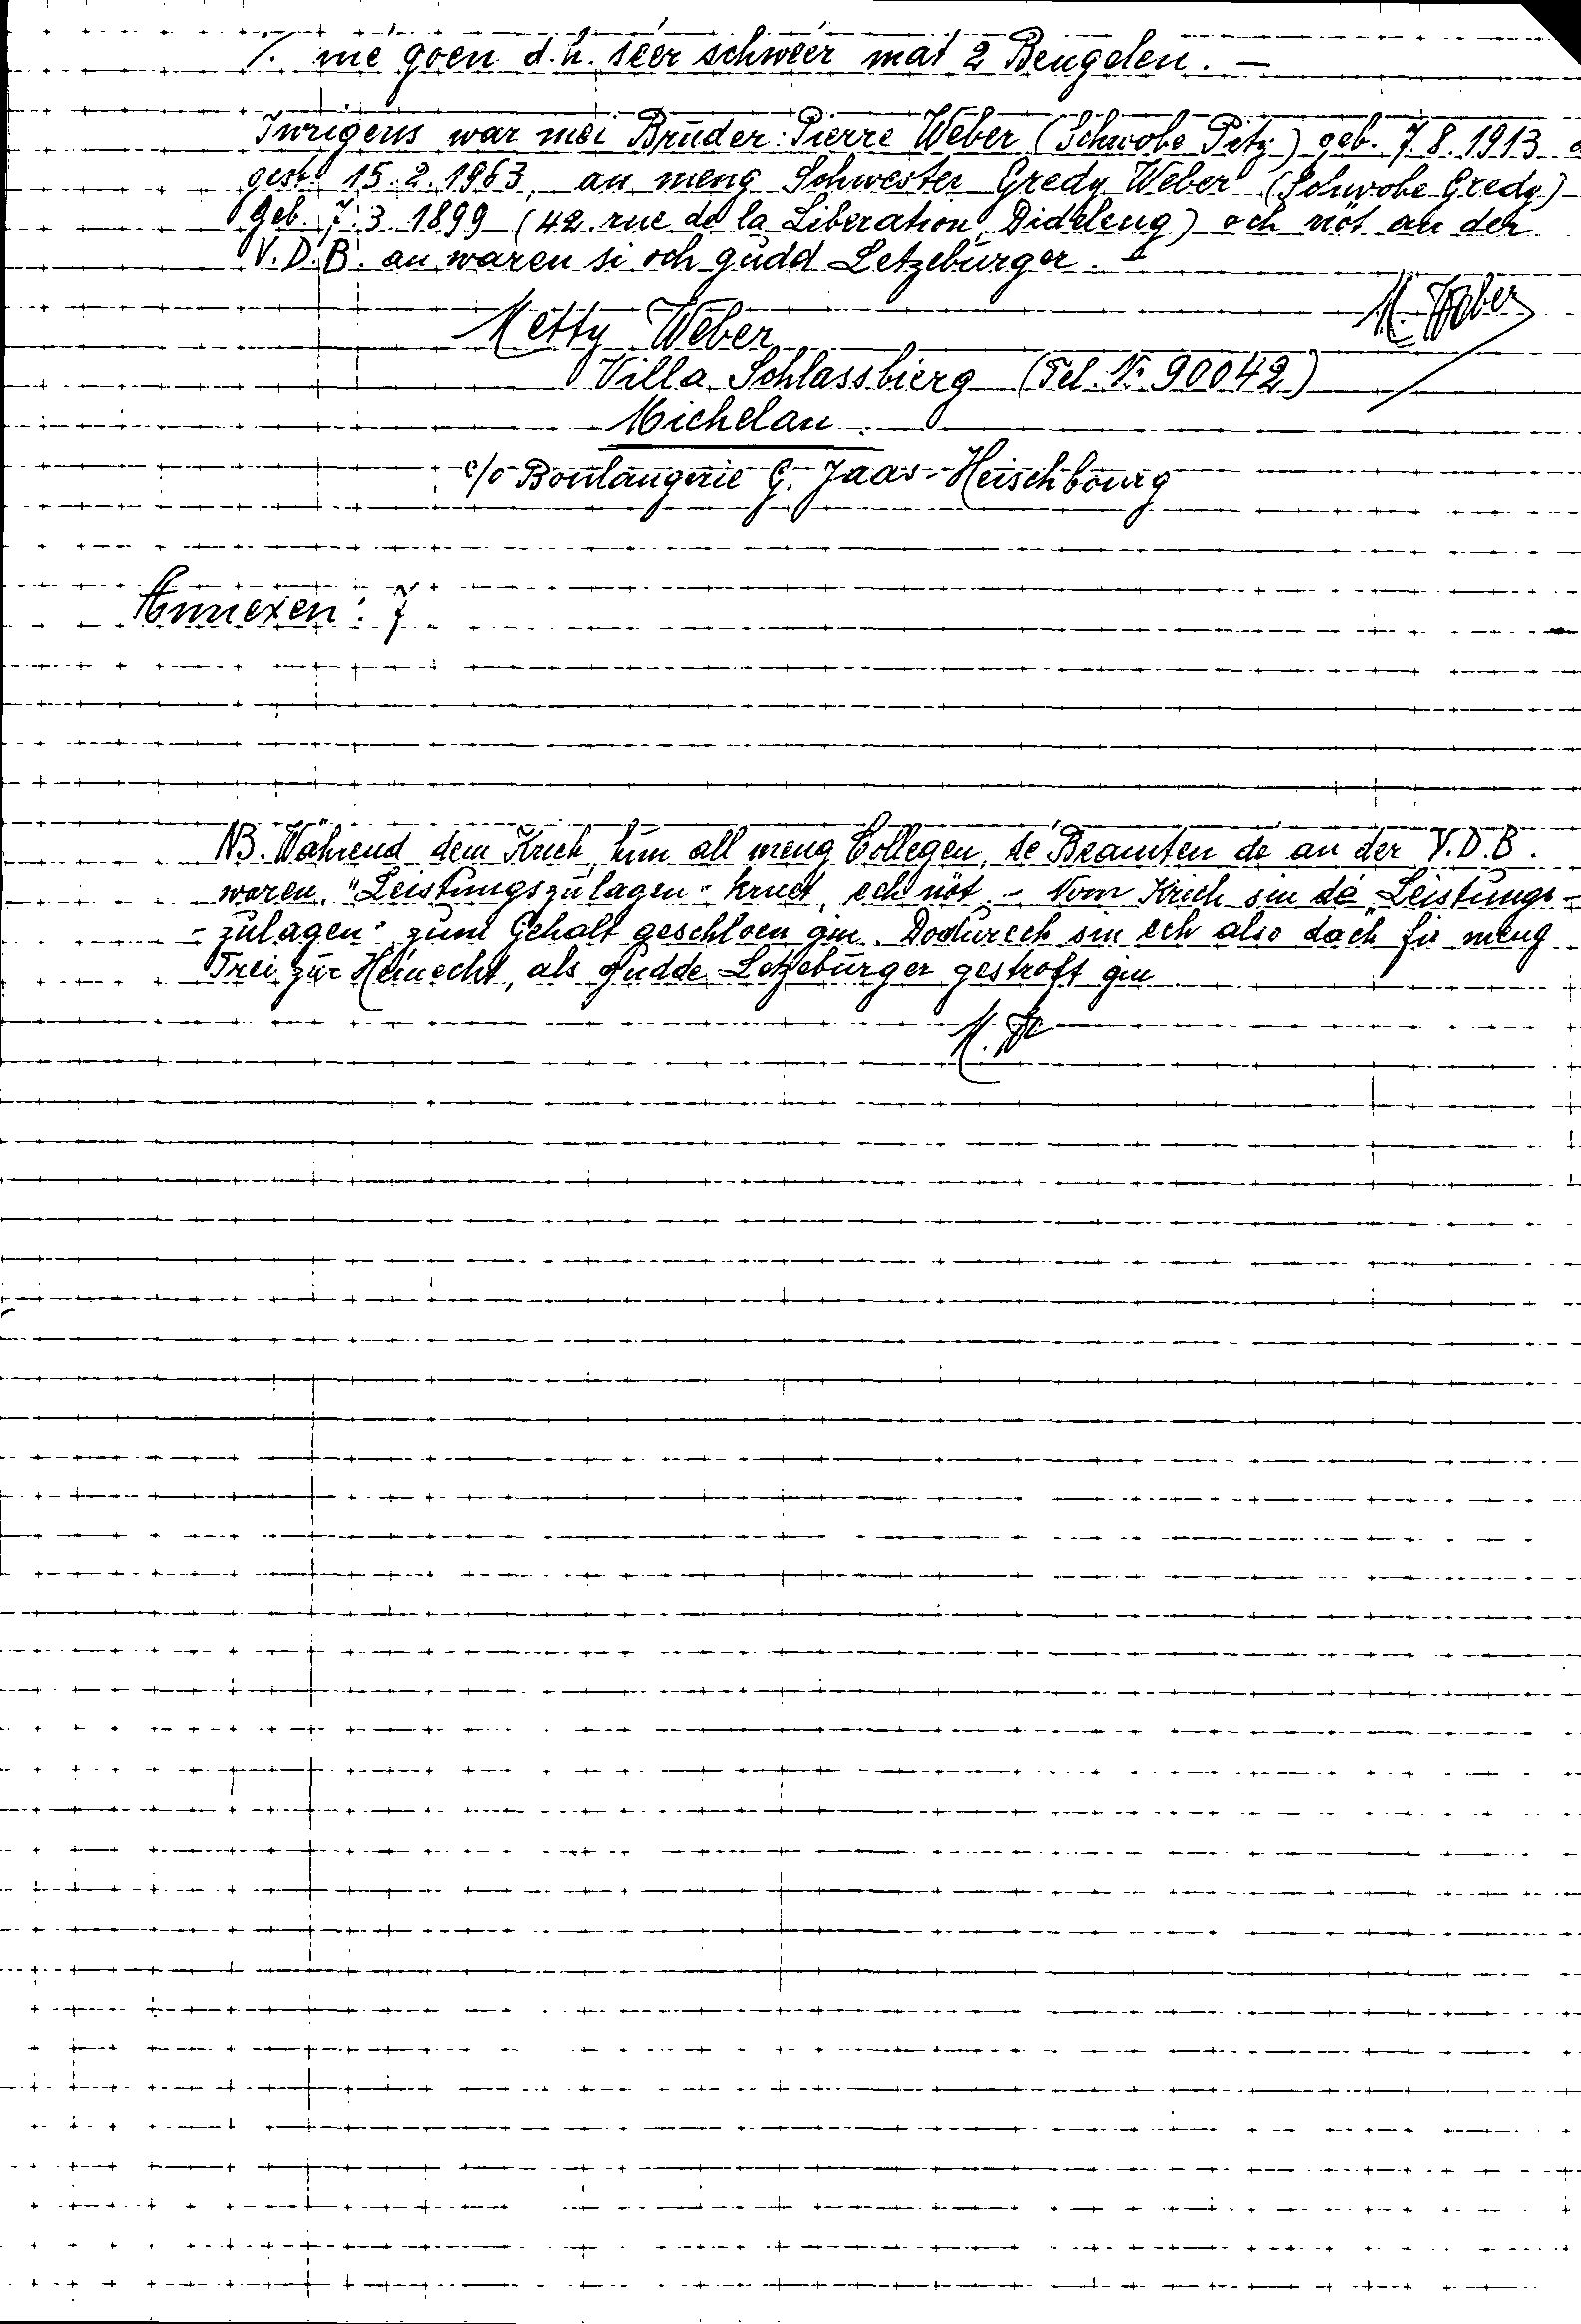 /. mé goen d.h. séer schwéer mat 2 Bengelen. —
Iwrigens war mei Bruder: Pierre Weber (Schwobe Pitz) geb. 7.8.1913
gest. 15.2.1963, an meng Schwester Gredy Weber (Schwobe Gredy)
geb. 7.3.1899 (42. rue de la Liberation Dideleng) och nöt an der
V.D.B. an waren si och gudd Letzebürger. —
M. Weber
Metty Weber
Villa Schlassbierg (Tel. Nr. 90042)
Michelau.
c/o Boulangerie G. Jaas-Heischbourg
Annexen: 7
NB. Während dem Krich hun all meng Collegen, dé Beamten dé an der V.D.B.
waren, "Leistungszulagen" kruct, ech nöt. - Vom Krich sin dé "Leistungs-
- zulagen" zum Gehalt geschloen gin. Dodurech sin ech also dach fir meng
Trei zur Heimecht, als gudde Letzebürger gestroft gin
M. W